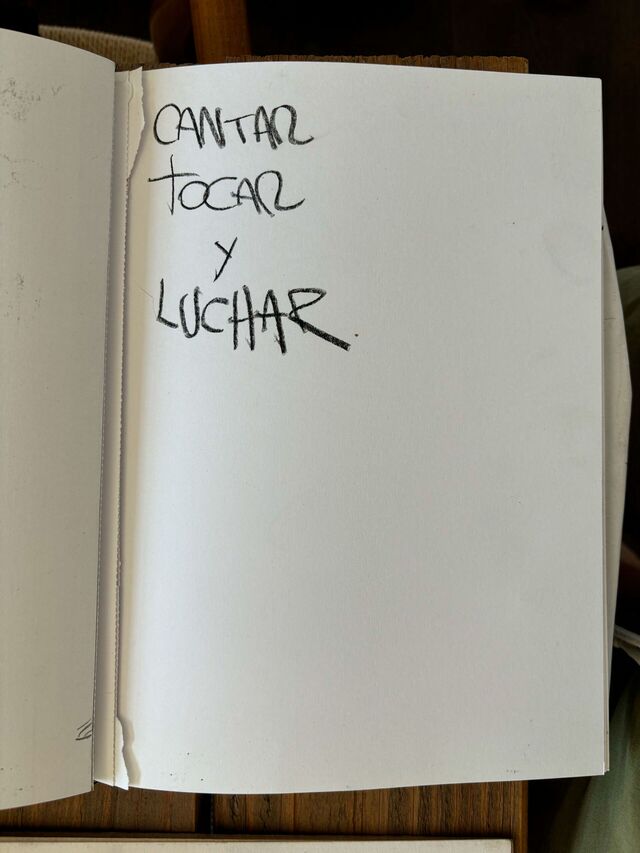 CANTAR
TOCAR
y
LUCHAR